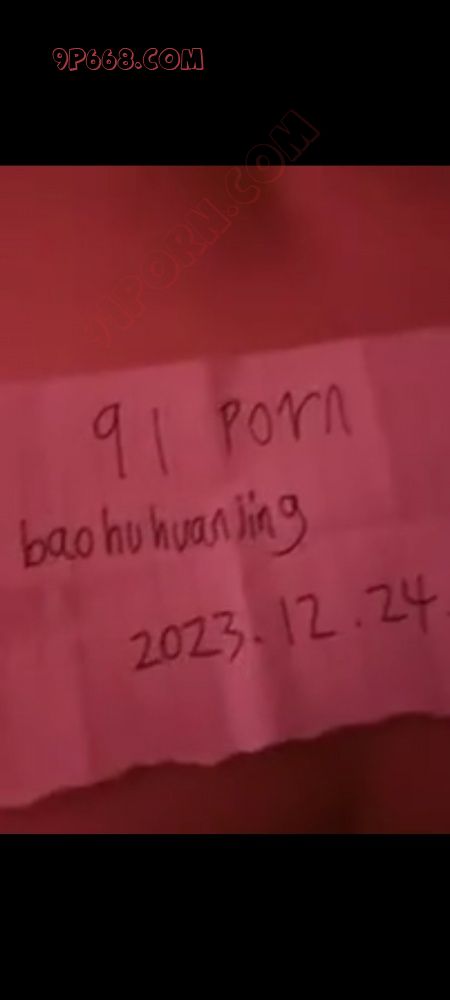 9P668.COM
91PORN.COM
91 Porn
baohuhuanjing
2023.12.24.